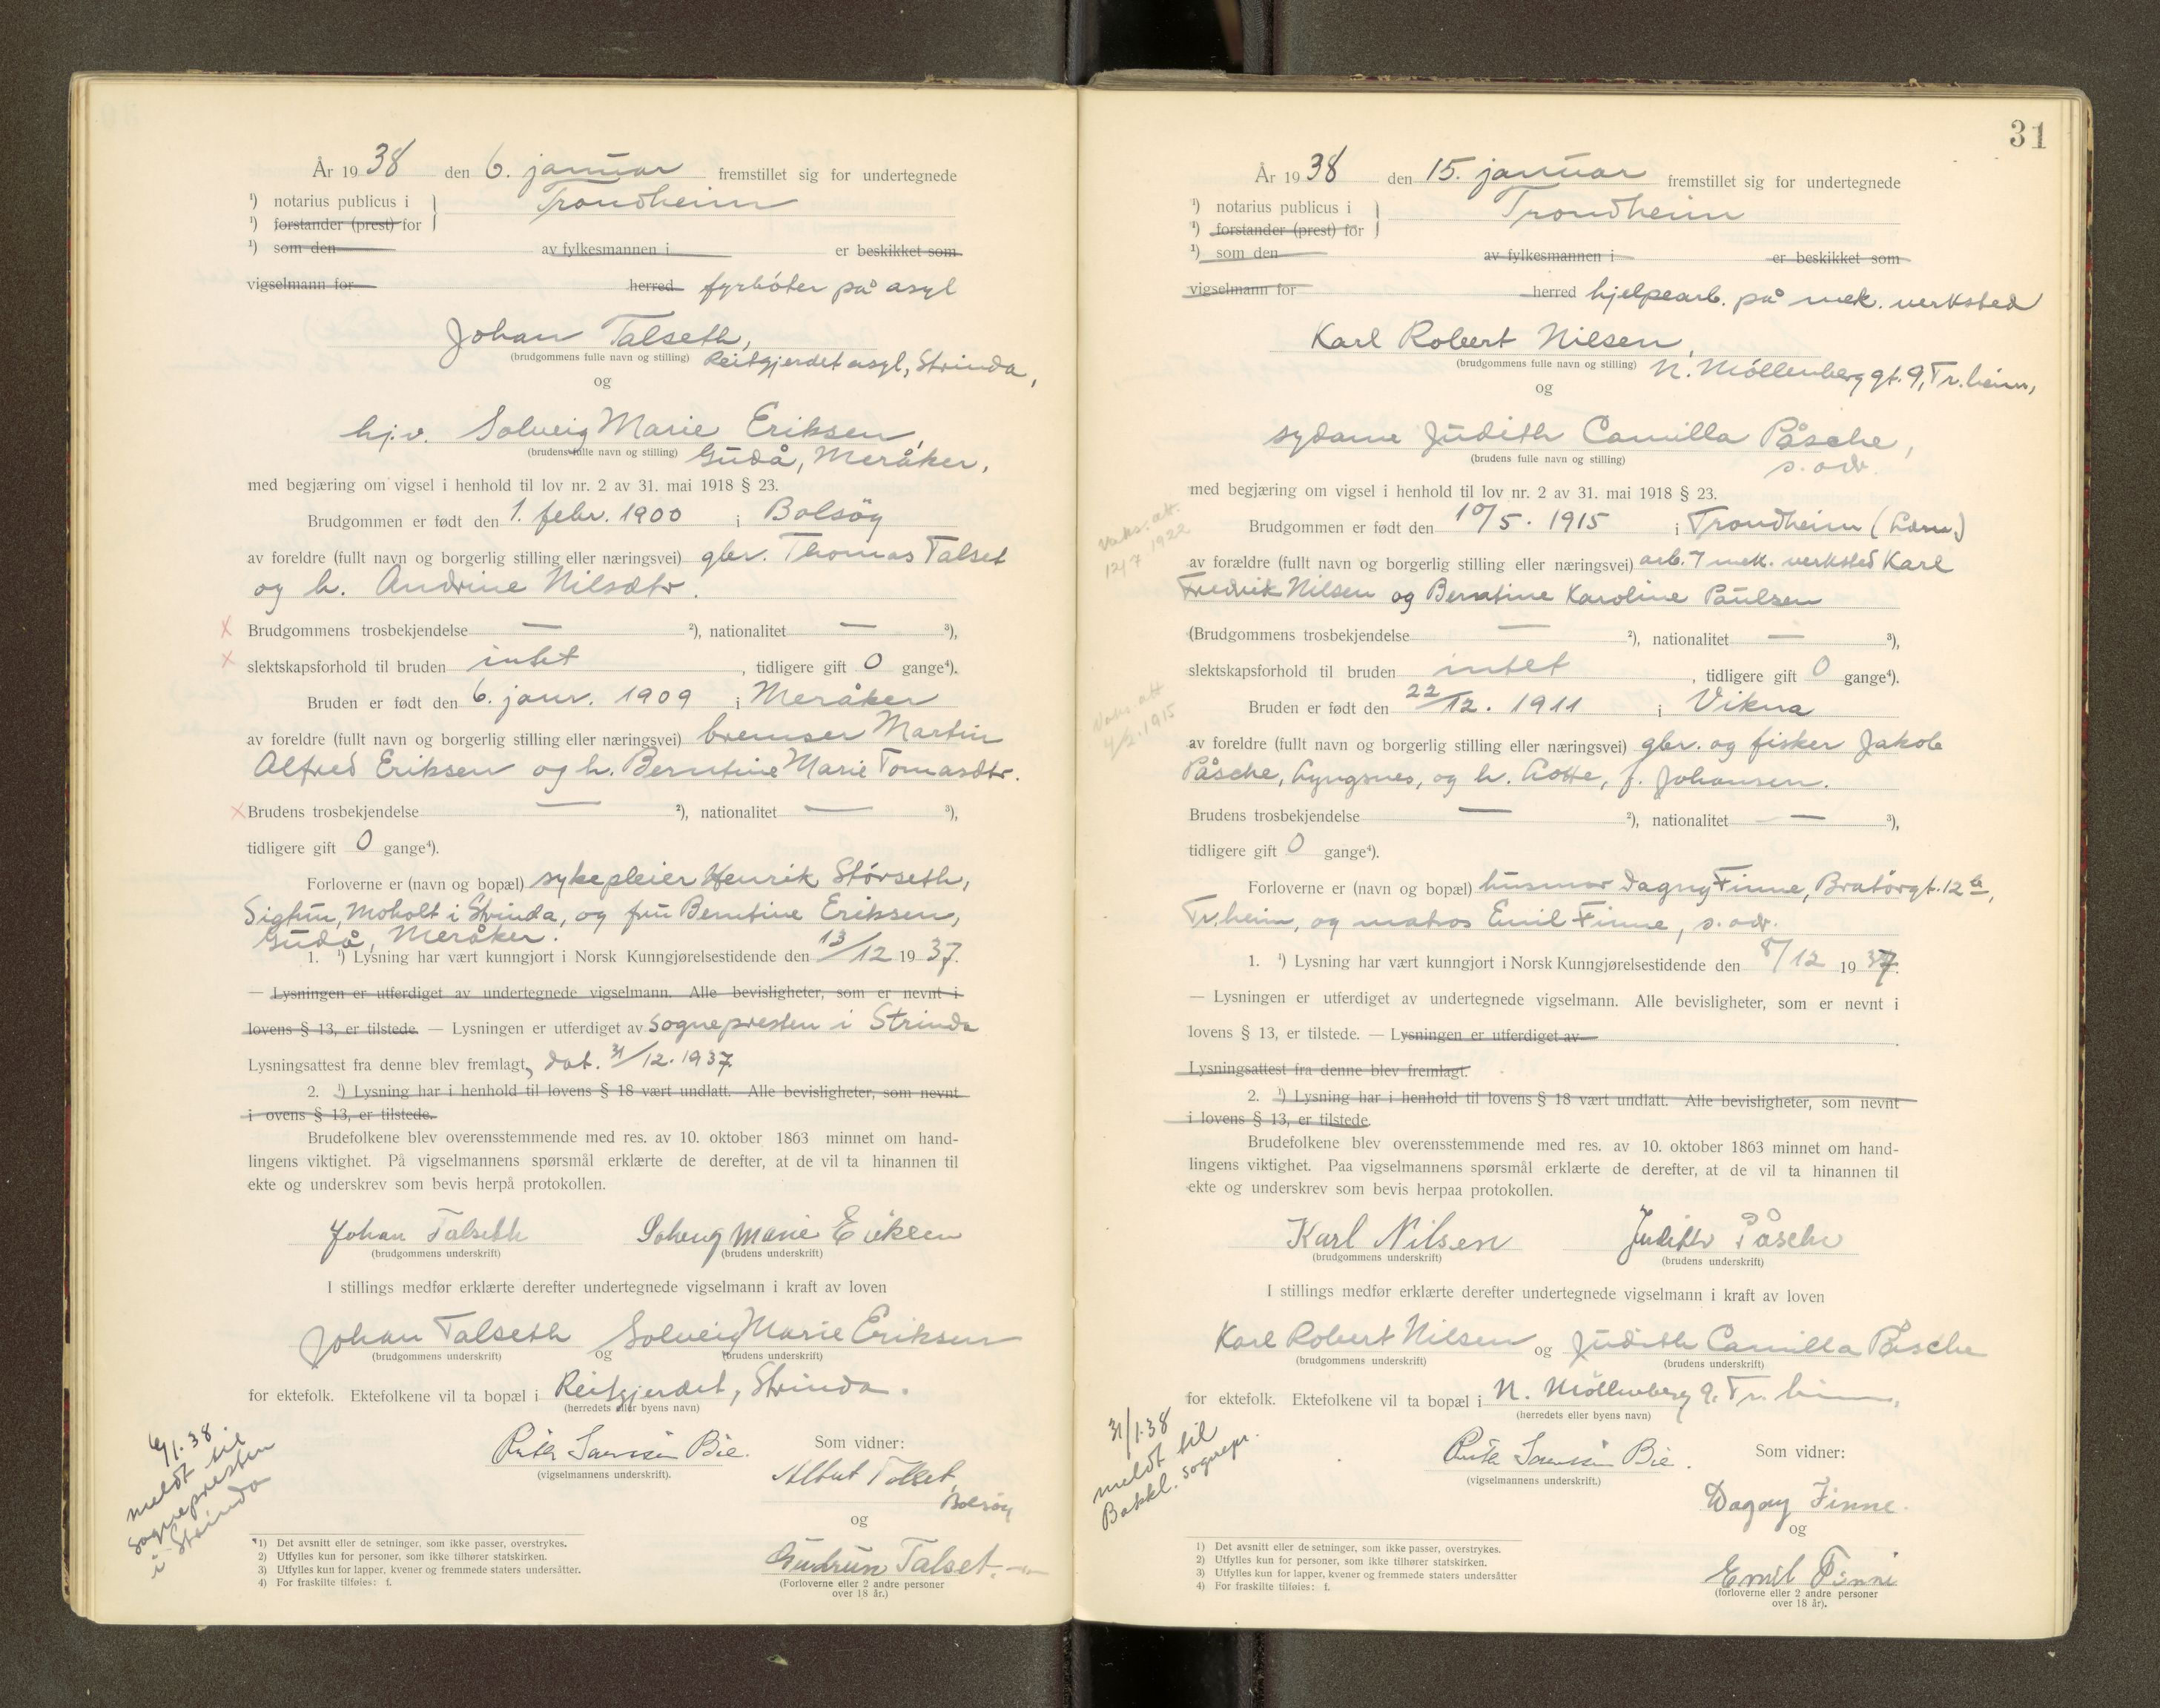 År 1938 den 6. januar fremstillet sig for undertegnede
¹) notarius publicus i Trondheim
¹) forstander (prest) for
¹) som den av fylkesmannen i er beskikket som
vigselmann for herred fyrbøter på asyl
Johan Talseth,
(brudgommens fulle navn og stilling) Reitgjerdet asyl, Strinda,
og
hj.v. Solveig Marie Eriksen,
(brudens fulle navn og stilling) Gudå, Meråker,
med begjæring om vigsel i henhold til lov nr. 2 av 31. mai 1918 § 23.
Brudgommen er født den 1. febr. 1900 i Bolsöy
av foreldre (fullt navn og borgerlig stilling eller næringsvei) gbr. Thomas Talset
og h. Andrine Nilsdtr.
x Brudgommens trosbekjendelse — ²), nationalitet — ³),
x slektskapsforhold til bruden intet, tidligere gift 0 gange⁴).
Bruden er født den 6. janr. 1909 i Meråker
av foreldre (fullt navn og borgerlig stilling eller næringsvei) bremser Martin
Alfred Eriksen og h. Berntine Marie Tomasdtr.
x Brudens trosbekjendelse — ²), nationalitet — ³),
tidligere gift 0 gange⁴).
Forloverne er (navn og bopæl) sykepleier Henrik Störseth,
Sigtun, Moholt i Strinda, og fru Berntine Eriksen,
Gudå, Meråker.
1. ¹) Lysning har vært kunngjort i Norsk Kunngjørelsestidende den 13/12 1937.
— Lysningen er utferdiget av undertegnede vigselmann. Alle bevisligheter, som er nevnt i
lovens § 13, er tilstede. — Lysningen er utferdiget av sognepresten i Strinda
Lysningsattest fra denne blev fremlagt, dat. 31/12.1937.
2. ¹) Lysning har i henhold til lovens § 18 vært undlatt. Alle bevisligheter, som nevnt
i ovens § 13, er tilstede.
Brudefolkene blev overensstemmende med res. av 10. oktober 1863 minnet om hand-
lingens viktighet. På vigselmannens spørsmål erklærte de derefter, at de vil ta hinannen til
ekte og underskrev som bevis herpå protokollen.
Johan Talseth Solveig Marie Eriksen
(brudgommens underskrift) (brudens underskrift)
I stillings medfør erklærte derefter undertegnede vigselmann i kraft av loven
Johan Talseth og Solveig Marie Eriksen
(brudgommens underskrift) (brudens underskrift)
for ektefolk. Ektefolkene vil ta bopæl i Reitgjerdet, Strinda.
(herredets eller byens navn)
6/1.38.
meldt til
sognepresten
i Strinda
Ruth Bie. Som vidner:
(vigselmannens underskrift). Talset,
Bolsöy
og
Gudrun Talset
(Forloverne eller 2 andre personer
over 18 år.)
1) Det avsnitt eller de setninger, som ikke passer, overstrykes.
2) Utfylles kun for personer, som ikke tilhører statskirken.
3) Utfylles kun for lapper, kvener og fremmede staters undersåtter.
4) For fraskilte tilføies: f.
31
År 1938 den 15. januar fremstillet sig for undertegnede
¹) notarius publicus i Trondheim
¹) forstander (prest) for
¹) som den av fylkesmannen i er beskikket som
vigselmann for herred hjelpearb. på mek. verksted
Karl Robert Nilsen,
(brudgommens fulle navn og stilling) N. Möllenberg gt. 9, Tr.heim,
og
sydame Judith Camilla Påsche,
(brudens fulle navn og stilling) s. adr.
med begjæring om vigsel i henhold til lov nr. 2 av 31. mai 1918 § 23.
Vaks. att.
12/7 1922
Brudgommen er født den 10/5. 1915 i Trondheim (Lam.)
av forældre (fullt navn og borgerlig stilling eller næringsvei) arb. mek. verksted Karl
Fredrik Nilsen og Berntine Karoline Paulsen
(Brudgommens trosbekjendelse — ²), nationalitet — ³),
slektskapsforhold til bruden intet, tidligere gift 0 gange⁴).
Vaks. att
4/2.1915
Bruden er født den 22/12. 1911 i Vikna
av foreldre (fullt navn og borgerlig stilling eller næringsvei) gbr. og fisker Jakob
Påsche, Lyngsnes, og h. Lotte, f. Johansen.
Brudens trosbekjendelse — ²), nationalitet — ³),
tidligere gift 0 gange⁴).
Forloverne er (navn og bopæl) husmor Dagny Finne, Bratörgt. 12 b,
Tr.heim, og matros Emil Finne, s. adr.
1. ¹) Lysning har vært kunngjort i Norsk Kunngjørelsestidende den 8/12 1937.
— Lysningen er utferdiget av undertegnede vigselmann. Alle bevisligheter, som er nevnt i
lovens § 13, er tilstede. — Lysningen er utferdiget av
Lysningsattest fra denne blev fremlagt.
2. ¹) Lysning har i henhold til lovens § 18 vært undlatt. Alle bevisligheter, som nevnt
i lovens § 13, er tilstede
Brudefolkene blev overensstemmende med res. av 10. oktober 1863 minnet om hand-
lingens viktighet. Paa vigselmannens spørsmål erklærte de derefter, at de vil ta hinannen til
ekte og underskrev som bevis herpaa protokollen.
Karl Nilsen Judith Påsche
(brudgommens underskrift) (brudens underskrift)
I stillings medfør erklærte derefter undertegnede vigselmann i kraft av loven
Karl Robert Nilsen og Judith Camilla Påsche
(brudgommens underskrift) (brudens underskrift)
for ektefolk. Ektefolkene vil ta bopæl i N. Möllenberg 9, Tr.heim,
(herredets eller byens navn)
31/1.38
meldt til
Bakkl. sognepr.
Ruth Bie. Som vidner:
(vigselmannens underskrift.)
Dagny Finne.
og
Emil Finne
(forloverne eller 2 andre personer
over 18 år).
1) Det avsnitt eller de setninger, som ikke passer, overstrykes.
2) Utfylles kun for personer, som ikke tilhører statskirken.
3) Utfylles kun for lapper, kvener og fremmede staters undersåtter
4) For fraskilte tilføies: f.